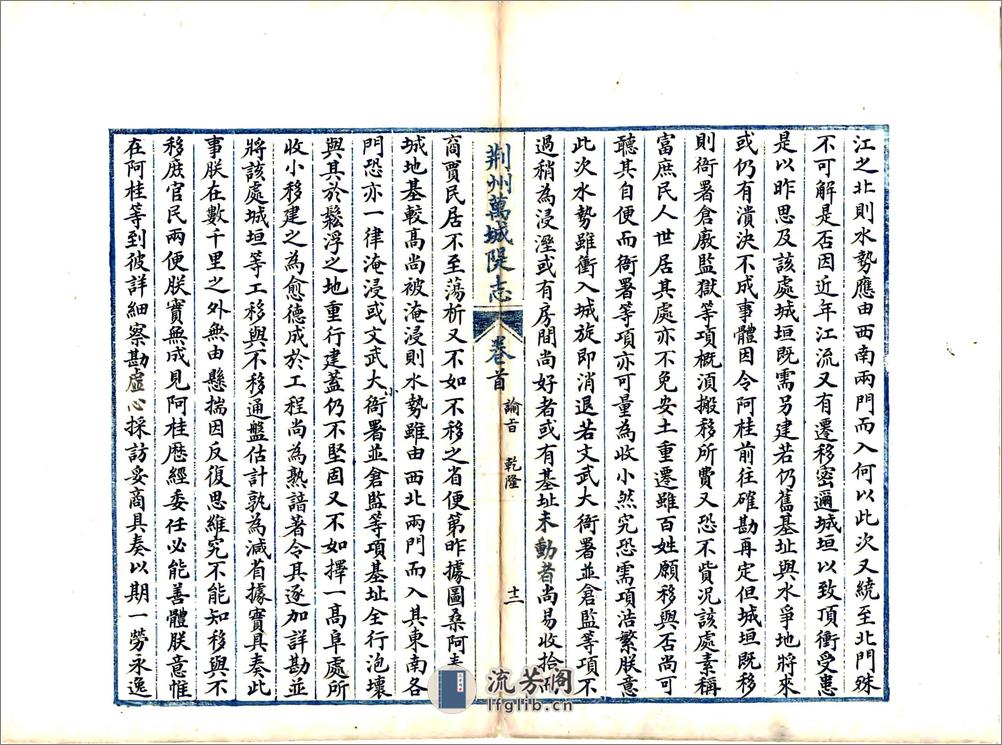 江之北則水勢應由西南兩門而入何以此次又繞至北門殊
不可解是否因近年江流又有遷移密邇城垣以致頂衝受患
是以昨思及該處城垣既需另建若仍舊基址與水爭地將來
或仍有潰決不成事體因令阿桂前往確勘再定但城垣既移
則衙署倉廒監獄等項概須搬移所費又恐不貲況該處素稱
富庶民人世居其處亦不免安土重遷雖百姓願移與否尚可
聽其自便而衙署等項亦可量為收小然究恐需項浩繁朕意
此次水勢雖衝入城旋即消退若文武大衙署並倉監等項不
過稍為浸溼或有房間尚好者或有基址未動者尚易收拾
荆州萬城隄志 卷首 諭旨 乾隆 十二
商賈民居不至蕩析又不如不移之省便第昨據圖桑阿奏
城地基較高尚被淹浸則水勢雖由西北兩門而入其東南各
門恐亦一律淹浸或文武大小衙署並倉監等項基址全行泡壞
與其於鬆浮之地重行建蓋仍不堅固又不如擇一高阜處所
收小移建之為愈德成於工程尚為熟諳著令其逐加詳勘並
將該處城垣等工移與不移通盤估計孰為減省據實具奏此
事朕在數千里之外無由懸揣因反復思維究不能知移與不
移庶官民兩便朕實無成見阿桂歷經委任必能善體朕意惟
在阿桂等到彼詳細察勘虛心採訪妥商具奏以期一勞永逸
流芳閣
lfglib.cn